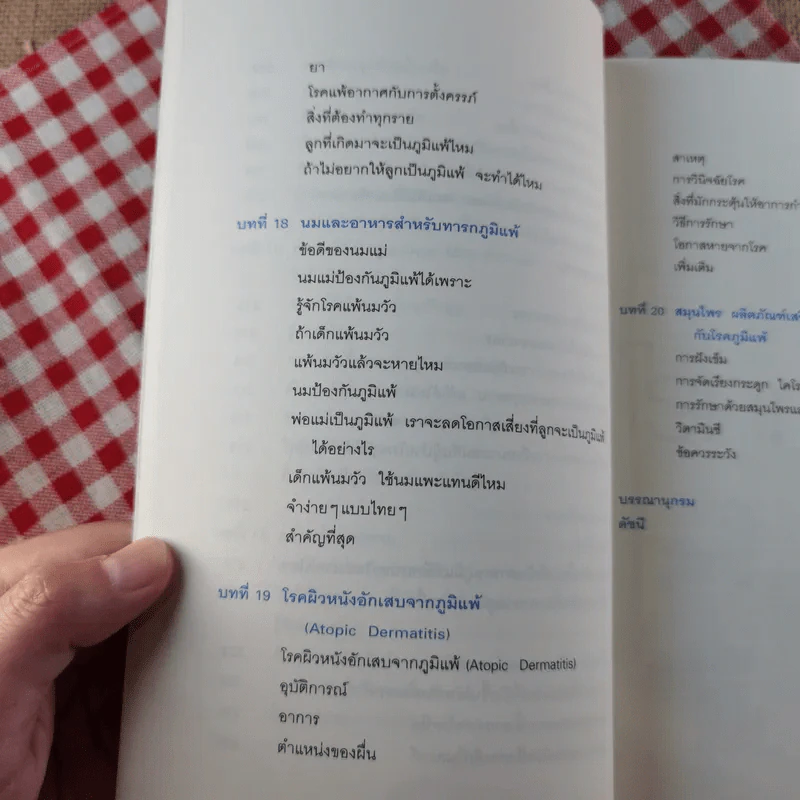 ยา
โรคแพ้อากาศกับการตั้งครรภ์
สิ่งที่ต้องทำทุกราย
ลูกที่เกิดมาจะเป็นภูมิแพ้ไหม
ถ้าไม่อยากให้ลูกเป็นภูมิแพ้ จะทำได้ไหม
บทที่ 18 นมและอาหารสำหรับทารกภูมิแพ้
ข้อดีของนมแม่
นมแม่ป้องกันภูมิแพ้ได้เพราะ
รู้จักโรคแพ้นมวัว
ถ้าเด็กแพ้นมวัว
แพ้นมวัวแล้วจะหายไหม
นมป้องกันภูมิแพ้
พ่อแม่เป็นภูมิแพ้ เราจะลดโอกาสเสี่ยงที่ลูกจะเป็นภูมิแพ้
ได้อย่างไร
เด็กแพ้นมวัว ใช้นมแพะแทนดีไหม
จำง่ายๆ แบบไทยๆ
สำคัญที่สุด
บทที่ 19 โรคผิวหนังอักเสบจากภูมิแพ้
(Atopic Dermatitis)
โรคผิวหนังอักเสบจากภูมิแพ้ (Atopic Dermatitis)
อุบัติการณ์
อาการ
ตำแหน่งของผื่น
สาเหตุ
การวินิจฉัยโรค
สิ่งที่มักกระตุ้นให้อาการกำ
วิธีการรักษา
โอกาสหายจากโรค
เพิ่มเติม
บทที่ 20 สมุนไพร ผลิตภัณฑ์เสริ
กับโรคภูมิแพ้
การฝังเข็ม
การจัดเรียงกระดูก ไคโร
การรักษาด้วยสมุนไพรแ
วิตามินซี
ข้อควรระวัง
บรรณานุกรม
ดัชนี